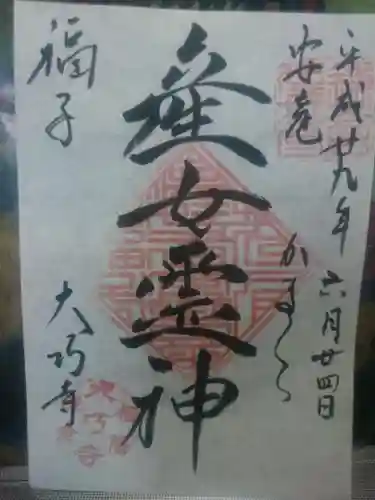 平成廿九年六月廿四日
安産
かまくら
産女霊神
福子
大巧寺